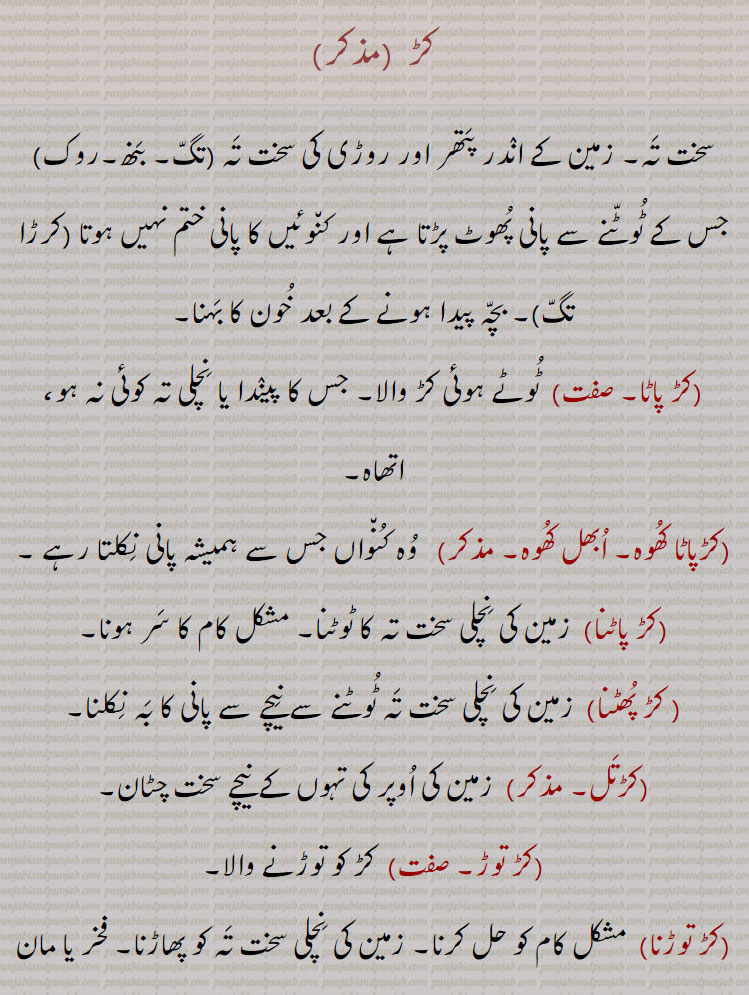 کڑ (مذکر)
سخت تَہ۔ زمین کے انْدر پتَھر اور روڑی کی سخت تَہ (تگّ۔ بَنھ۔ روک)
جس کے ٹُوٹّنے سے پانی پُھوٹ پڑتا ہے اور کنّوئیں کا پانی ختم نہیں ہوتا (کرڑا
تگّ)۔ بچّہ پیدا ہونے کے بعد خُون کا بَہنا۔
(کڑ پاٹا۔ صفت) ٹُوٹے ہوئی کڑ والا۔ جس کا پینْدا یا نِچلی تہ کوئی نہ ہو،
اتھاہ۔
(کڑپاٹا کُھوہ۔ اُبھل کُھوہ۔ مذکر) وُہ کُنّواں جس سے ہمیشہ پانی نِکلتا رہے ۔
(کڑ پاٹنا) زمین کی نِچلی سخت تہ کا ٹوٹنا۔ مشکل کام کا سَر ہونا۔
( کڑ پُھٹنا) زمین کی نِچلی سخت تَہ ٹُوٹنے سے نیچے سے پانی کا بَہ نِکلنا۔
(کڑتَل۔ مذکر) زمین کی اُوپر کی تہوں کے نیچے سخت چٹان۔
(کڑ توڑ۔ صفت) کڑ کو توڑنے والا۔
(کڑ توڑنا) مشکل کام کو حل کرنا۔ زمین کی نِچلی سخت تَہ کو پھاڑنا۔ فخر یا مان